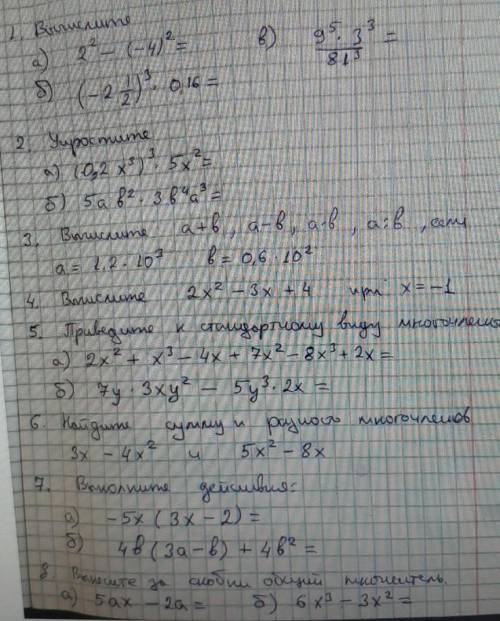 1. Вычислите
а) 2² − (−4)² =   в) 9⁵ · 3³ / 81³ =
б) (−2 1/2)³ · 0,16 =
2. Упростите
а) (0,2 x³)³ · 5x² =
б) 5ав² · 3в⁴а³ =
3. Вычислите а+в, а−в, а·в, а:в, если
а = 1,2 · 10³   в = 0,6 · 10²
4. Вычислите 2x² − 3x + 4 при x = −1
5. Приведите к стандартному виду многочлены
а) 2x² + x³ − 4x + 7x² − 8x³ + 2x =
б) 7y · 3xy² − 5y³ · 2x =
6. Найдите сумму и разность многочленов
3x − 4x² и 5x² − 8x
7. Выполните действия:
а) −5x (3x − 2) =
б) 4в (3а − в) + 4в² =
8. Вынесите за скобки общий множитель.
а) 5ах − 2а =   б) 6x³ − 3x² =